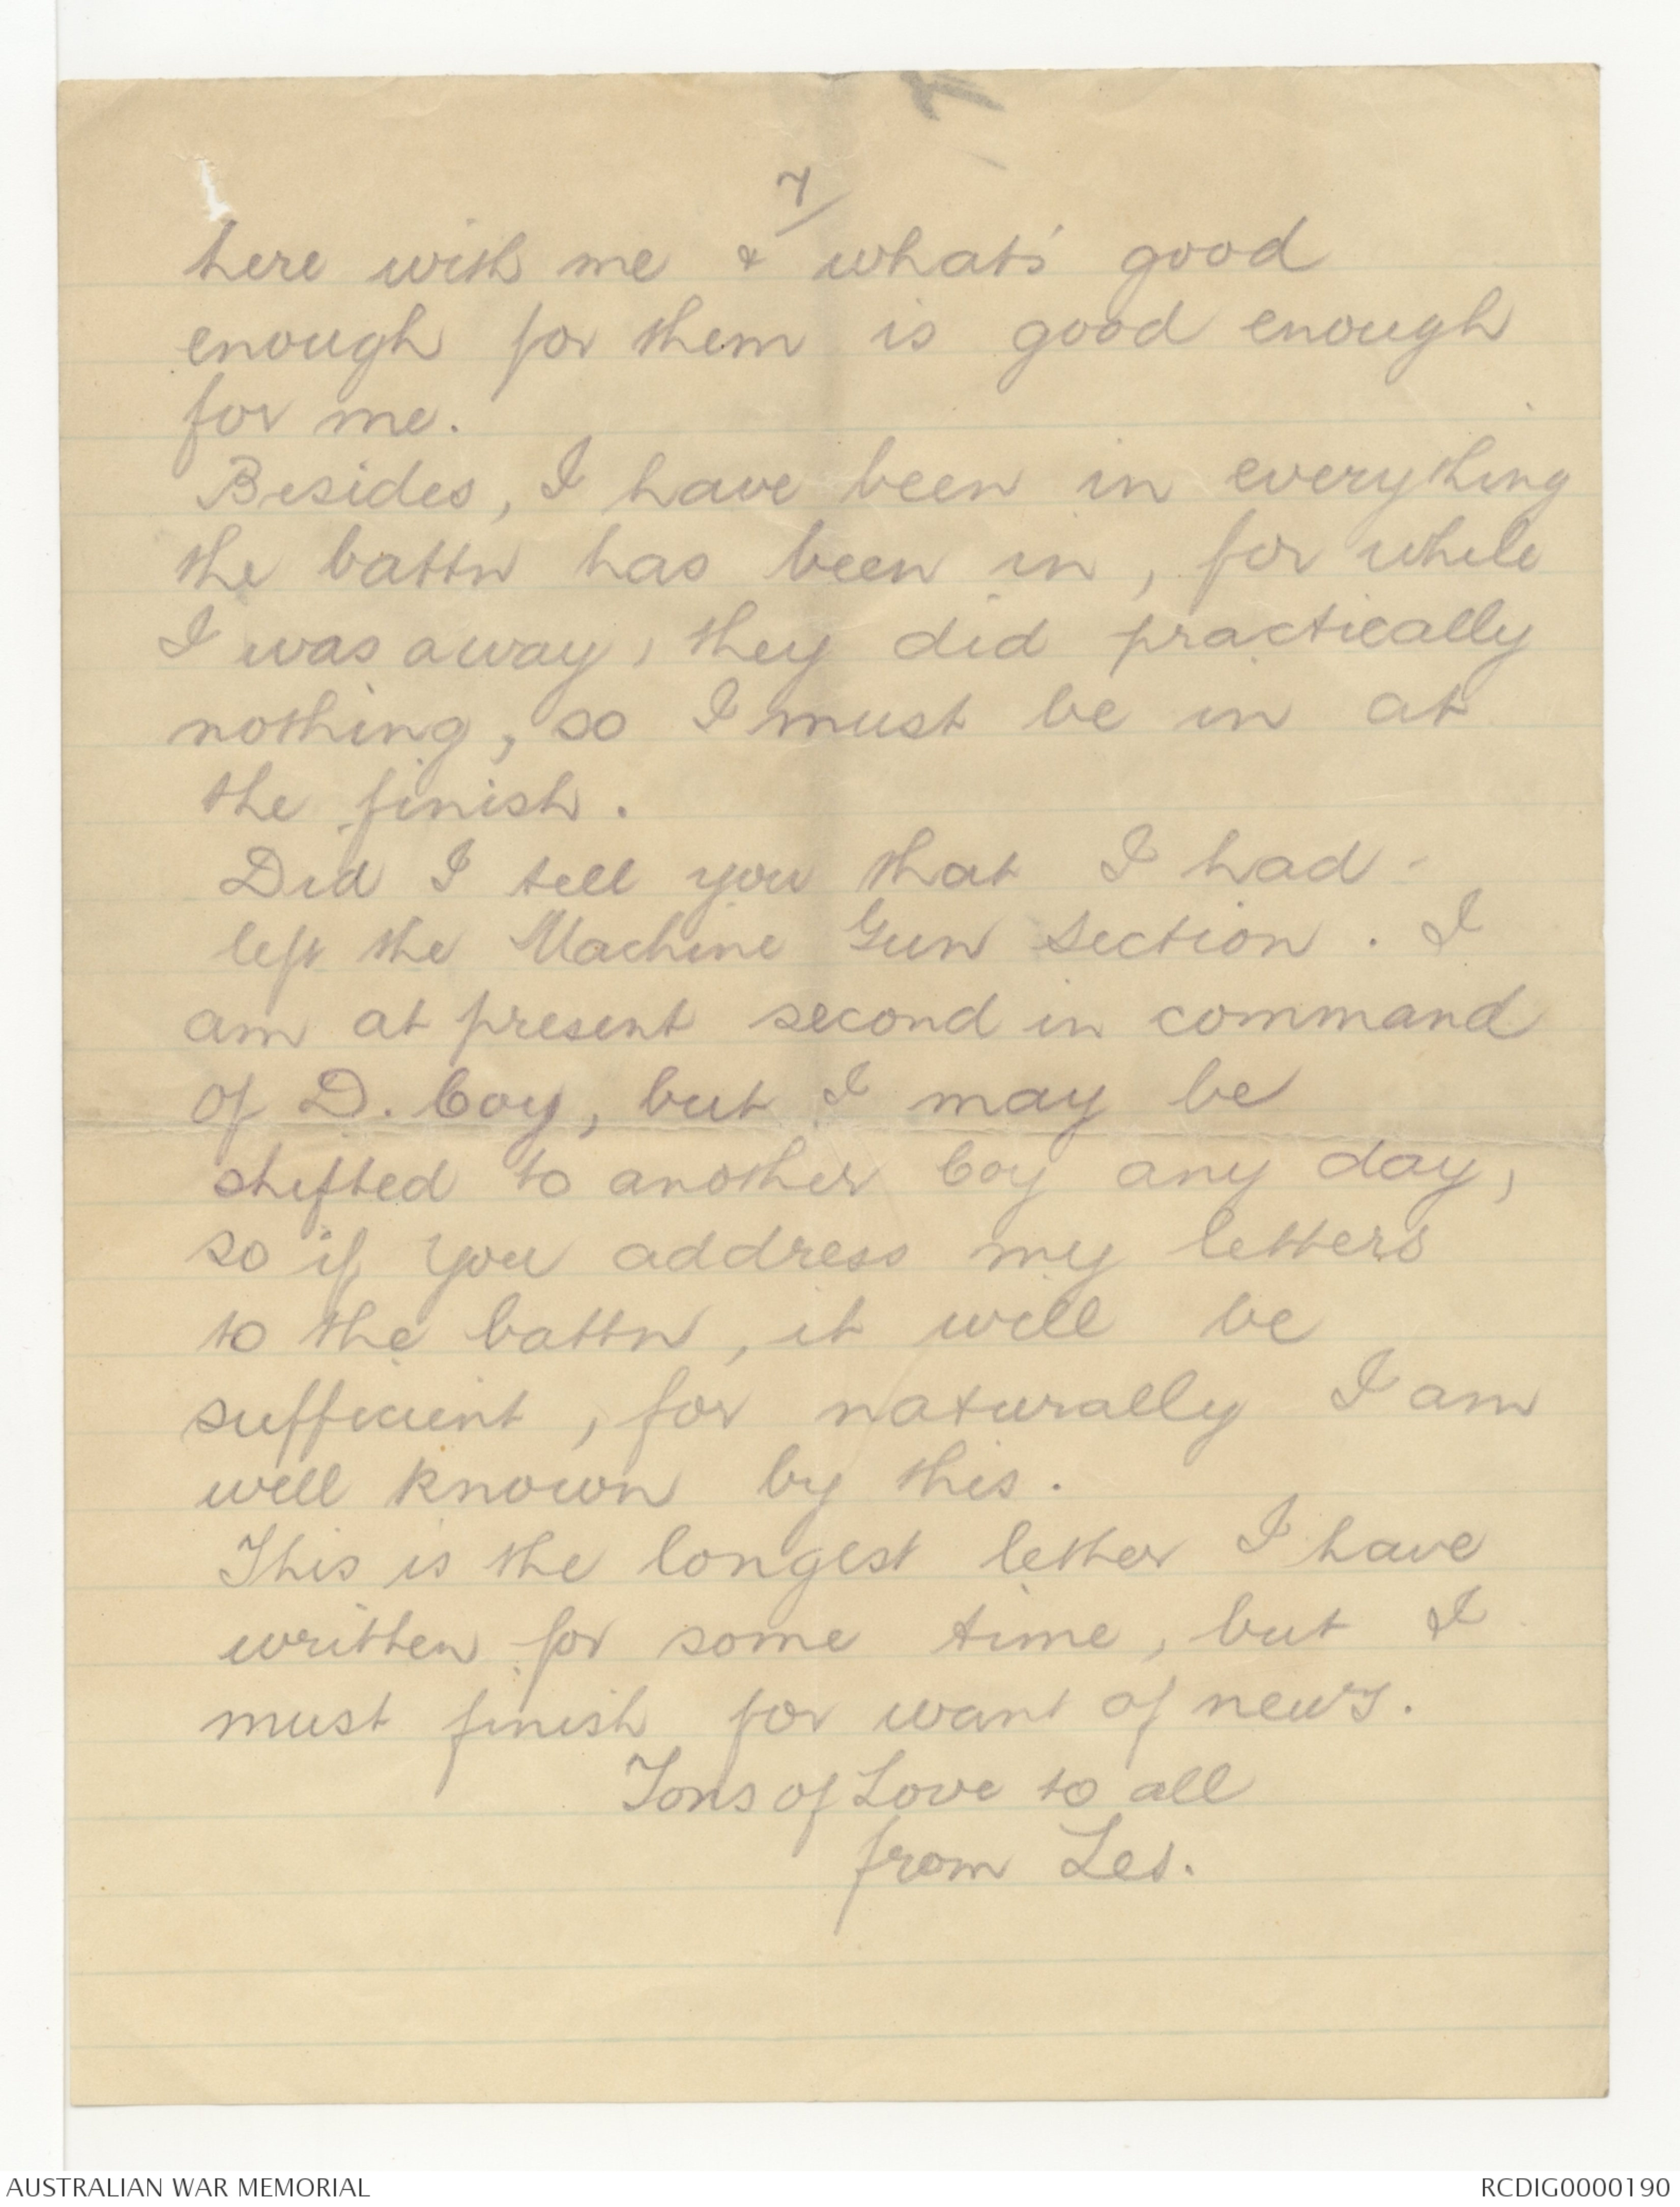 7/
here with me & what's good
enough for them is good enough
for me.
Besides, I have been in everything
the battn has been in, for while
I was away, they did practically
nothing, so I must be in at
the finish.
Did I tell you that I had
left the Machine Gun Section. I
am at present second in command
of D. Coy, but I may be
shifted to another Coy any day,
so if you address my letters
to the battn, it will be
sufficient, for naturally I am
well known by this.
This is the longest letter I have
written for some time, but I
must finish for want of news.
Tons of Love to all
from Les.
AUSTRALIAN WAR MEMORIAL
RCDIG0000190